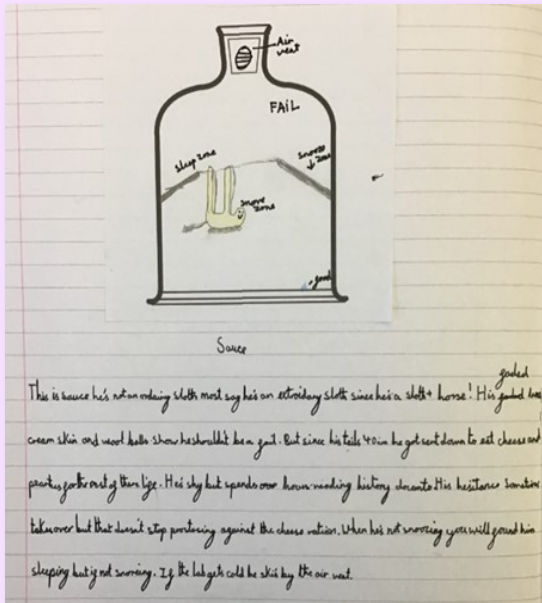 Air
vent
FAIL
sleep zone
snooze
zone
snore
zone
Sauce
This is sauce he's not an ordining sloth most say he's an sloth since he's a sloth + horse! His
cream skin and wool balls show he shouldn't be a fail. But since his tails 40 in he got sent down to eat cheese and
for the rest of there life. He's shy but spends over hours reading history His hesitance Sometime
takes over but that doesn't stop against the cheese ration. When he's not snoozing you will found him
sleeping but if not snoring. If the lab gets cold he by the air vent.